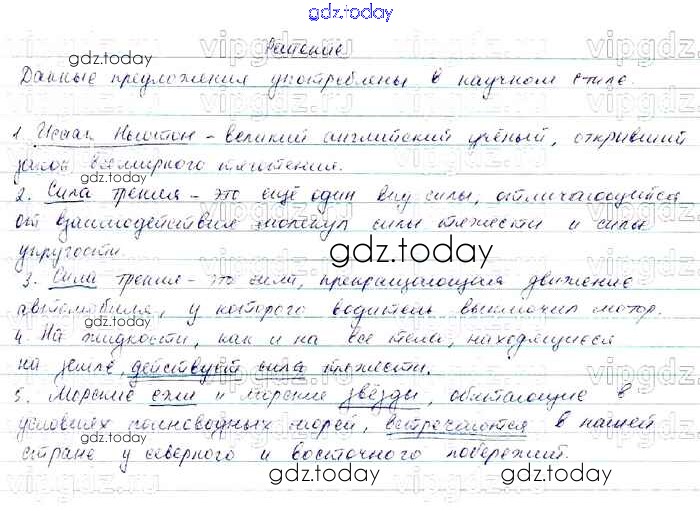 gdz.today
Решение
Данные предложения употреблены в научном стиле.
1. Исаак Ньютон - великий английский учёный, открывший
закон всемирного тяготения.
2. Сила трения - это ещё один вид силы, отличающийся
от взаимодействия молекул силы тяжести и силы
упругости.
3. Сила трения - это сила, прекращающая движение
автомобиля, у которого водитель выключил мотор.
4. На жидкости, как и на все тела, находящиеся
на земле, действует сила тяжести.
5. Морские ежи и морские звёзды, обитающие в
условиях полноводных морей, встречаются в нашей
стране у северного и восточного побережий.